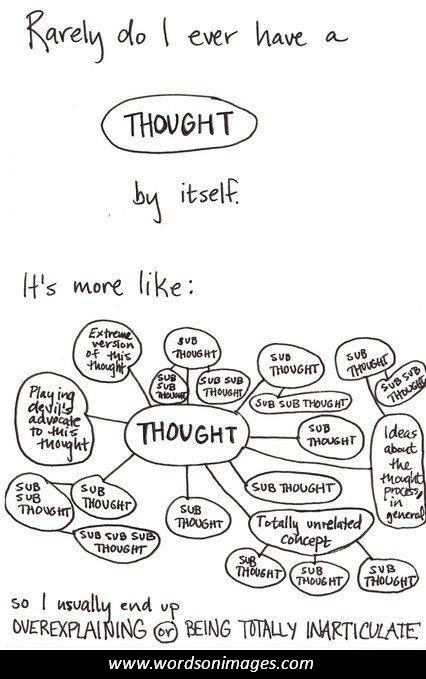 Rarely do I ever have a
THOUGHT
by itself.
It's more like:
Extreme
version
of this
thought
SUB
THOUGHT
SUB
SUB
THOUGHT
SUB SUB
THOUGHT
SUB
THOUGHT
SUB SUB THOUGHT
SUB
THOUGHT
SUB SUB
THOUGHT
Playing
devil's
advocate
to this
thought
THOUGHT
SUB
THOUGHT
Ideas
about
the
thought
process,
in
general
SUB
SUB
THOUGHT
SUB
THOUGHT
SUB SUB SUB
THOUGHT
SUB
THOUGHT
SUB THOUGHT
Totally unrelated
concept
SUB
THOUGHT
SUB
THOUGHT
SUB
THOUGHT
so I usually end up
OVEREXPLAINING or BEING TOTALLY INARTICULATE.
www.wordsonimages.com